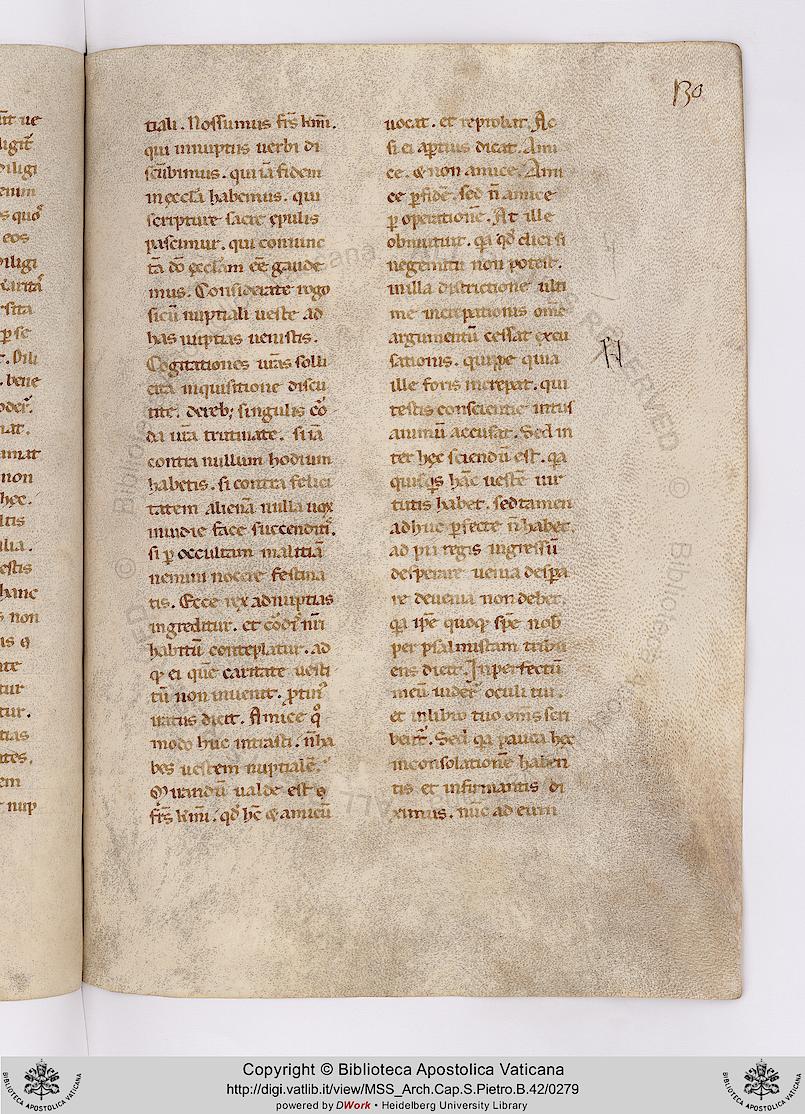 130
tiali. Nos sumus fr̄s km̄i.
qui in nuptiis uerbi di
scūbimus. qui iā fidem
in eccl̄a habemus. qui
scripture sacre epulis
pascimur. qui coniunc
tā dō eccl̄am eē gaude
mus. Considerate rogo
si cū nuptiali ueste ad
has nuptias uenistis.
Cogitationes ur̄as solli
cita inquisitione discu
tite. de reb; singulis cō
da ur̄a trutinate. si iā
contra nullum hodium
habetis. si contra felici
tatem alienā nulla uox
inuidie face succenditī.
si p̄ occultam malitiā
nemini nocere festina
tis. Ecce rex ad nuptias
ingreditur. et cōdī nr̄i
habitū conteplatur. ad
q; ei quē caritate uesti
tū non inuenit. ptin᷒
iratus dicit. Amice q̊
modo huc intrasti. n̄ ha
bes uestem nuptialē.
Mirandū ualde est
fr̄s km̄i. qđ hc̄ & amicū
uocat. et reprobat. Ac
si ei aptius dicat. Ami
ce. & non amice. Ami
ce p̄ fidē. sed n̄ amice
p̄ operatione. At ille
obmutuit. qa qđ dici si
ne gemitu non potest.
in illa districtione ulti
me increpationis om̄e
argumentū cessat excu
sationis. quippe quia
ille foris increpat. qui
testis conscientie intus
animū accusat. Sed in
ter hec sciendū est. qa
quisq̄s hāc uestē uir
tutis habet. sed tamen
adhuc p̄fecte n̄ habet.
ad pii regis ingressū
desperare uenia despa
re de uenia non debet.
qa ip̄e quoq; spē nob̄
per psalmistam tribu
ens dicit. Inperfectū
meū uider̄ oculi tui.
et in libro tuo om̄s scri
bent̄. Sed qa pauca hec
in consolationē haben
tis et infirmantis di
ximus. nūc ad eum
Copyright © Biblioteca Apostolica Vaticana
http://digi.vatlib.it/view/MSS_Arch.Cap.S.Pietro.B.42/0279
powered by DWork • Heidelberg University Library